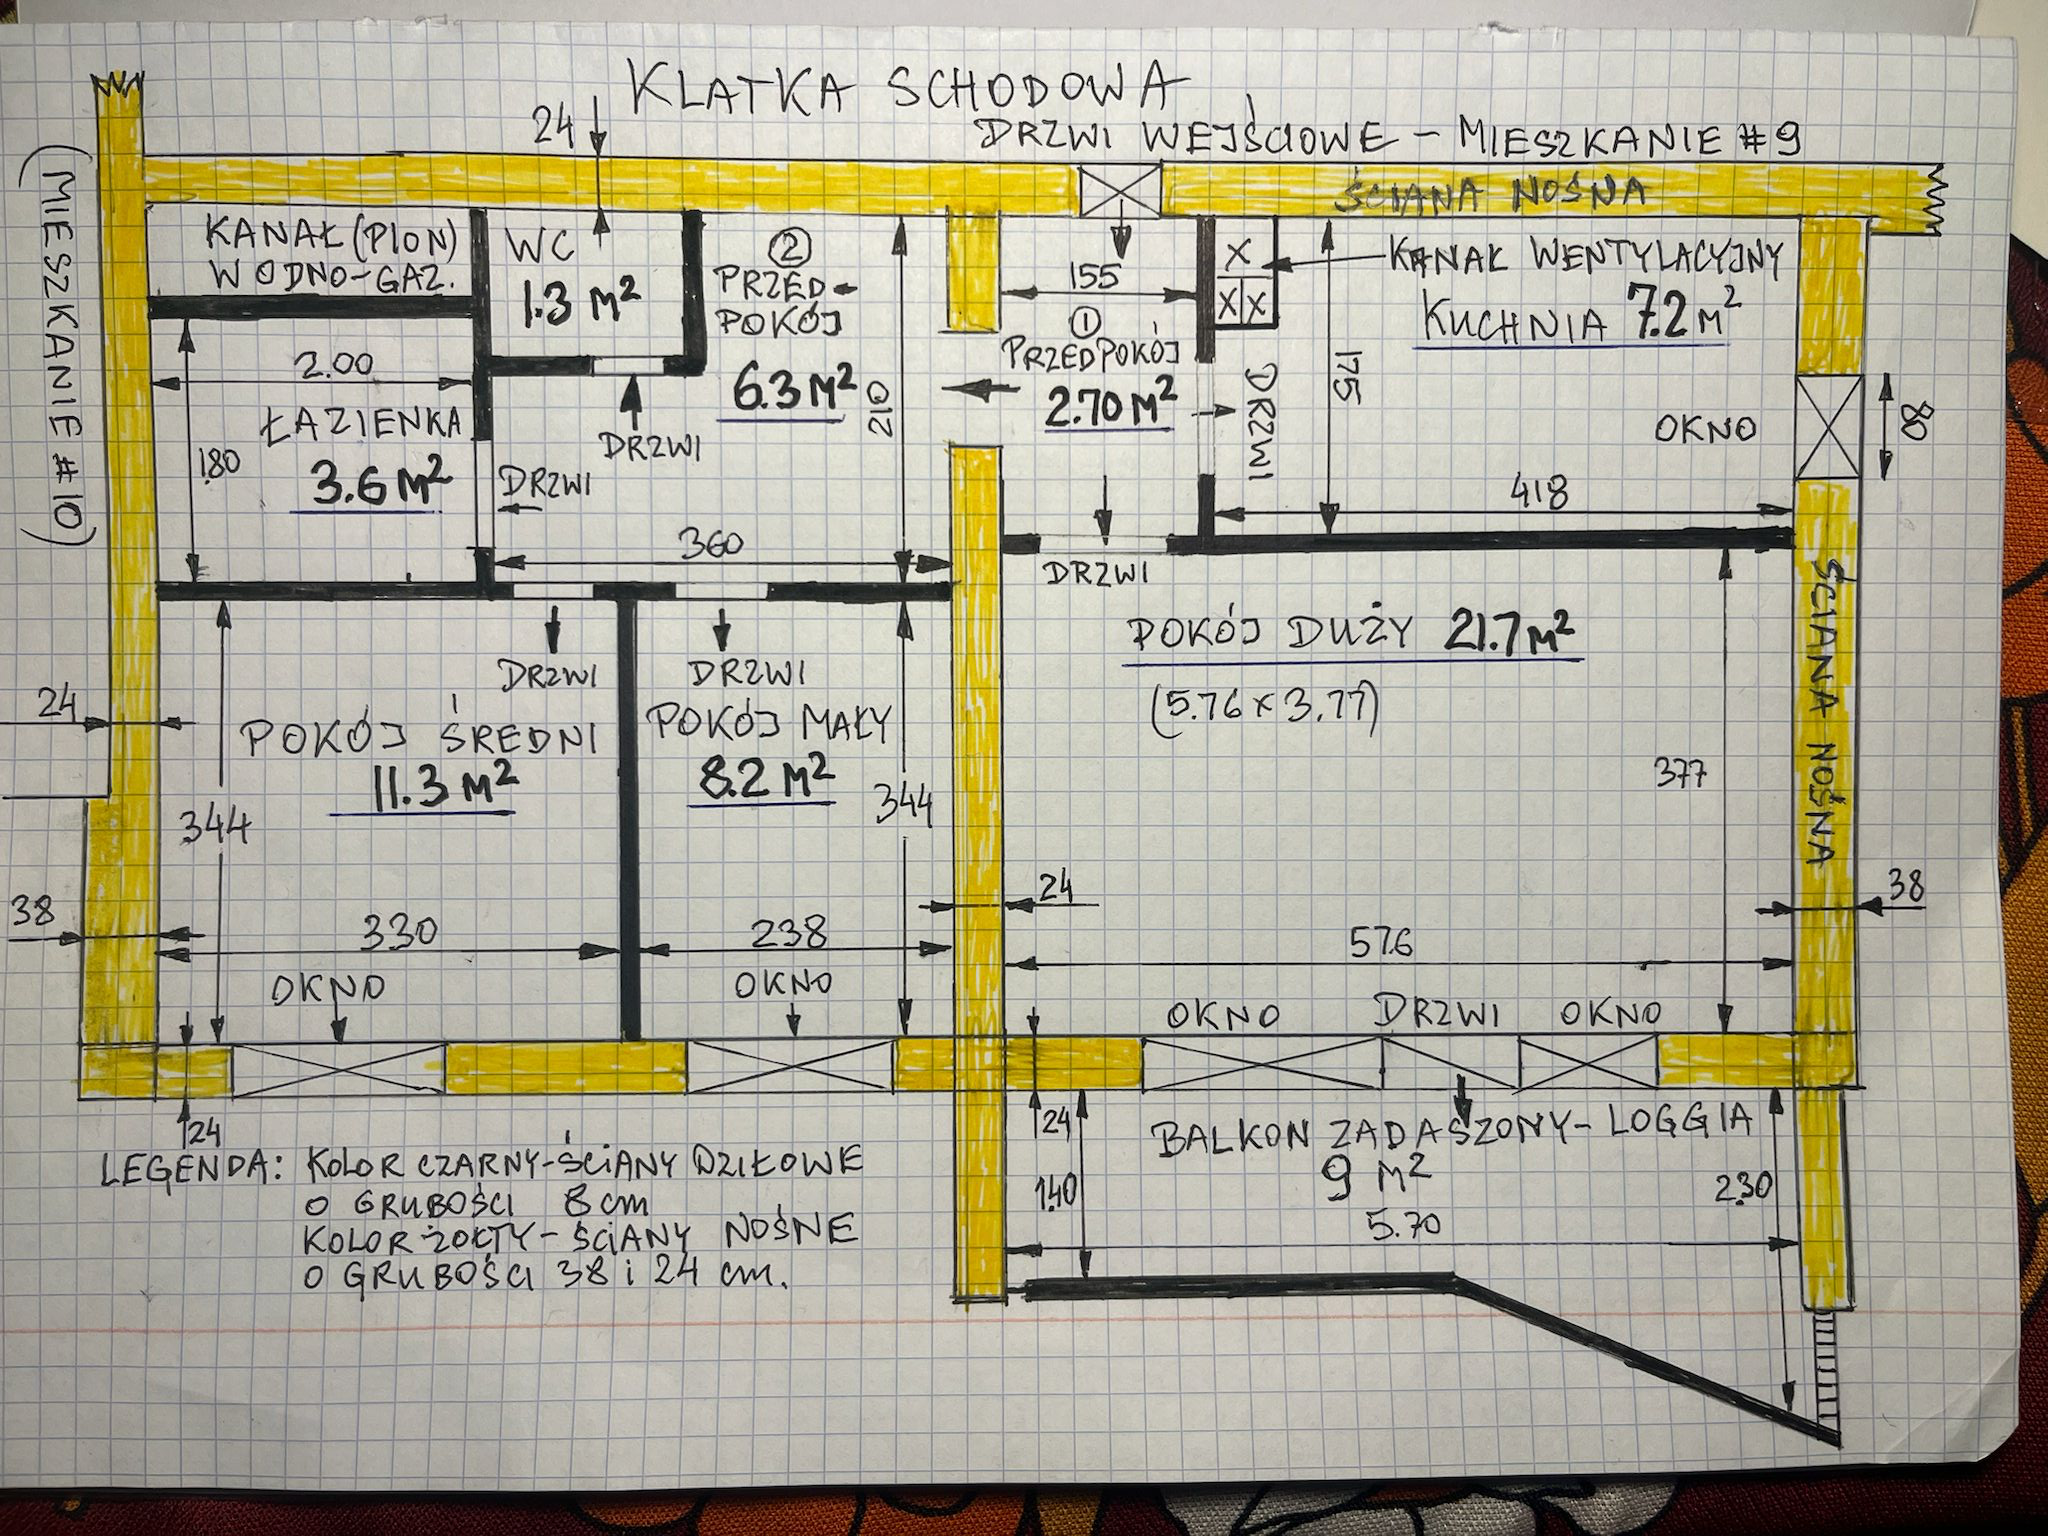 KLATKA SCHODOWA
24
DRZWI WEJŚCIOWE – MIESZKANIE #9
ŚCIANA NOŚNA
(MIESZKANIE #10)
KANAŁ (PION)
WODNO-GAZ.
WC
1.3 M²
②
PRZED-
POKÓJ
6.3 M²
210
155
①
PRZEDPOKÓJ
2.70 M²
X
X X
KANAŁ WENTYLACYJNY
KUCHNIA 7.2 M²
175
DRZWI
OKNO
80
418
2.00
ŁAZIENKA
180
3.6 M²
DRZWI
DRZWI
360
DRZWI
DRZWI
DRZWI
POKÓJ DUŻY 21.7 M²
(5.76 x 3.77)
ŚCIANA NOŚNA
24
POKÓJ ŚREDNI
11.3 M²
POKÓJ MAŁY
8.2 M²
344
344
377
38
330
238
24
576
38
OKNO
OKNO
OKNO
DRZWI
OKNO
24
24
BALKON ZADASZONY – LOGGIA
9 M²
140
5.70
2.30
LEGENDA: KOLOR CZARNY – ŚCIANY DZIŁOWE
O GRUBOŚCI 8 cm
KOLOR ŻÓŁTY – ŚCIANY NOŚNE
O GRUBOŚCI 38 i 24 cm.